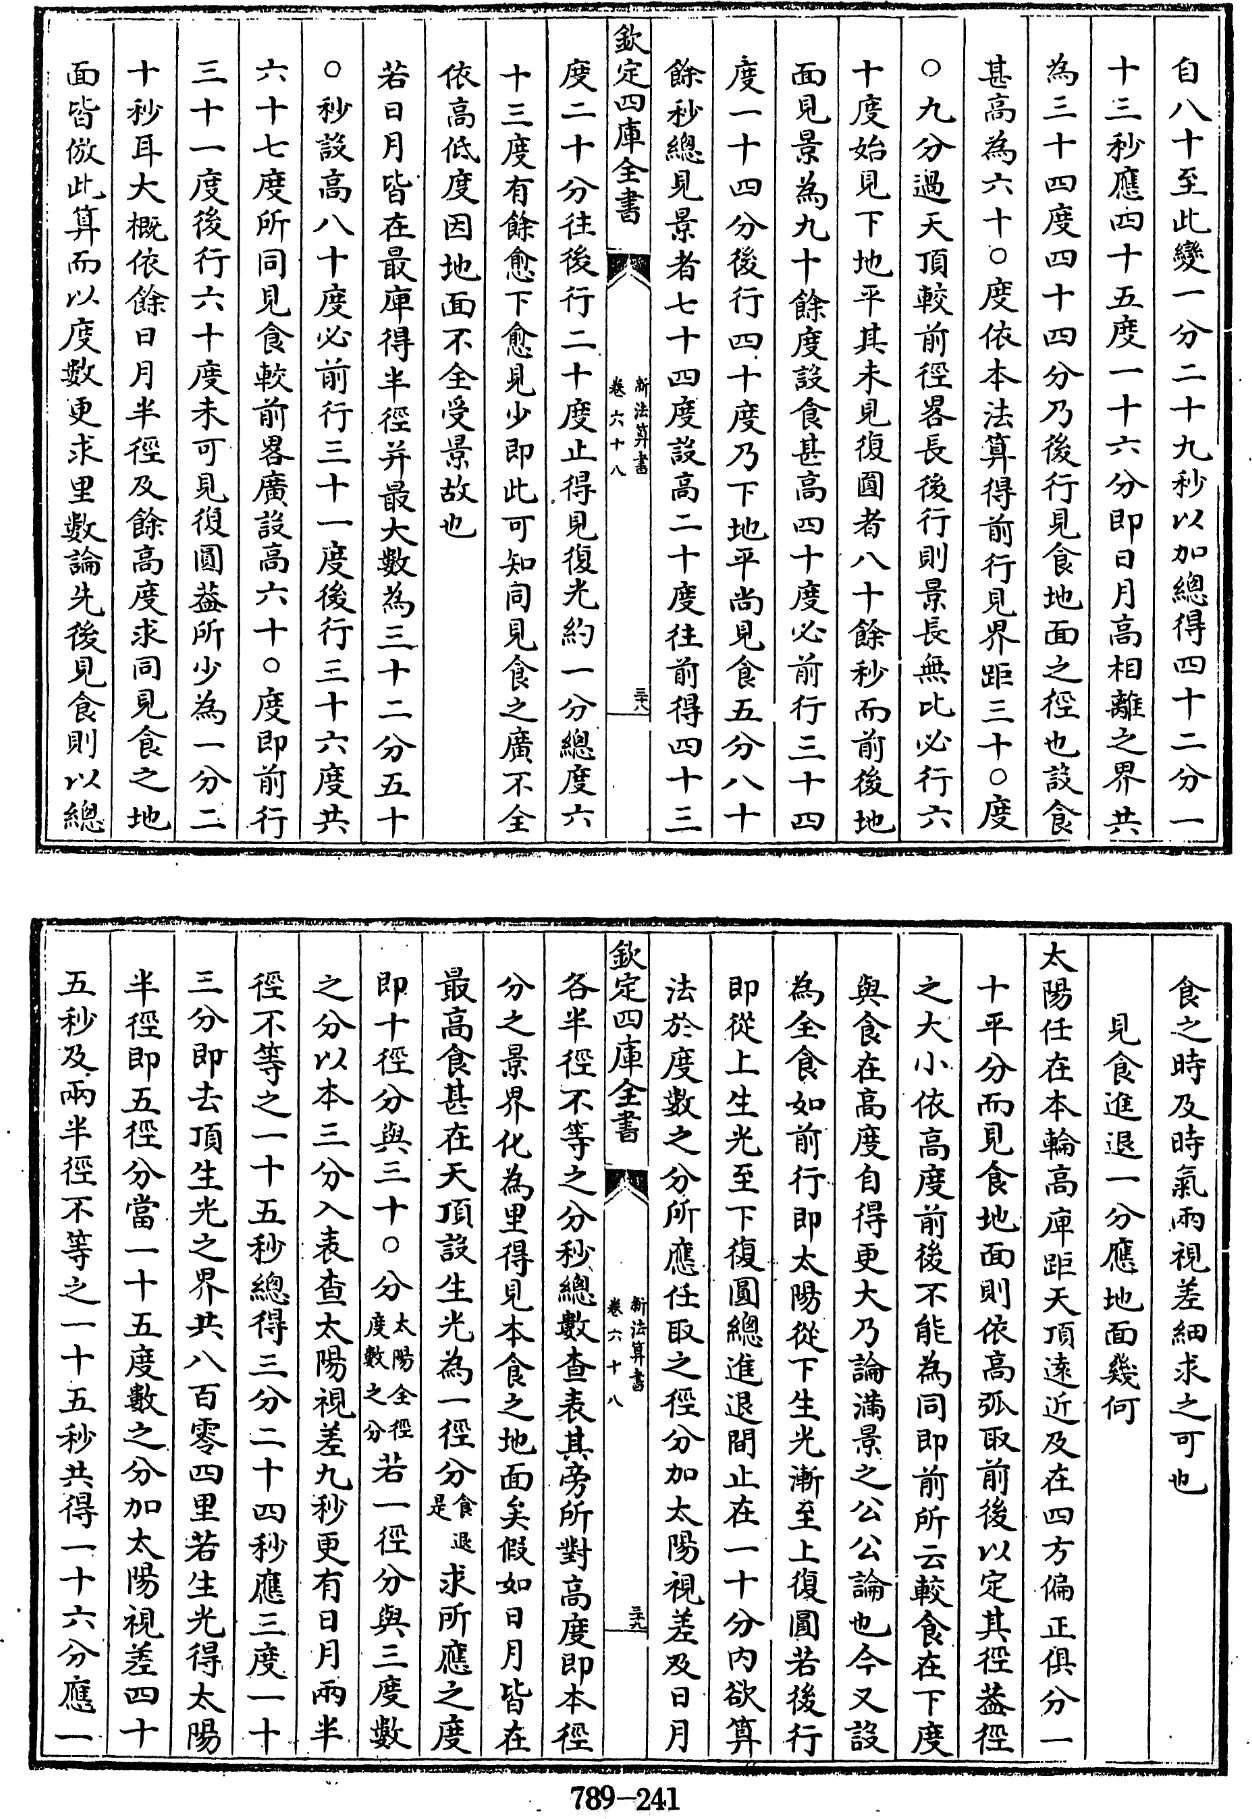 自八十至此變一分二十九秒以加總得四十二分一
十三秒應四十五度一十六分即日月高相離之界共
為三十四度四十四分乃後行見食地面之徑也設食
甚高為六十〇度依本法算得前行見界距三十〇度
〇九分過天頂較前徑畧長後行則景長無比必行六
十度始見下地平其未見復圓者八十餘秒而前後地
面見景為九十餘度設食甚高四十度必前行三十四
度一十四分後行四十度乃下地平尚見食五分八十
餘秒總見景者七十四度設高二十度往前得四十三
欽定四庫全書
新法算書
卷六十八
三十八
度二十分往後行二十度止得見復光約一分總度六
十三度有餘愈下愈見少即此可知同見食之廣不全
依高低度因地面不全受景故也
若日月皆在最庳得半徑并最大數為三十二分五十
〇秒設高八十度必前行三十一度後行三十六度共
六十七度所同見食較前畧廣設高六十〇度即前行
三十一度後行六十度未可見復圓葢所少為一分二
十秒耳大概依餘日月半徑及餘高度求同見食之地
面皆倣此算而以度數更求里數論先後見食則以總
食之時及時氣兩視差細求之可也
見食進退一分應地面幾何
太陽任在本輪高庳距天頂遠近及在四方偏正俱分一
十平分而見食地面則依高弧取前後以定其徑葢徑
之大小依高度前後不能為同即前所云較食在下度
與食在高度自得更大乃論滿景之公公論也今又設
為全食如前行即太陽從下生光漸至上復圓若後行
即從上生光至下復圓總進退間止在一十分內欲算
法於度數之分所應任取之徑分加太陽視差及日月
欽定四庫全書
新法算書
卷六十八
三十九
各半徑不等之分秒總數查表其旁所對高度即本徑
分之景界化為里得見本食之地面矣假如日月皆在
最高食甚在天頂設生光為一徑分食退是求所應之度
即十徑分與三十〇分太陽全徑度數之分若一徑分與三度數
之分以本三分入表查太陽視差九秒更有日月兩半
徑不等之一十五秒總得三分二十四秒應三度一十
三分即去頂生光之界共八百零四里若生光得太陽
半徑即五徑分當一十五度數之分加太陽視差四十
五秒及兩半徑不等之一十五秒共得一十六分應一
789-241